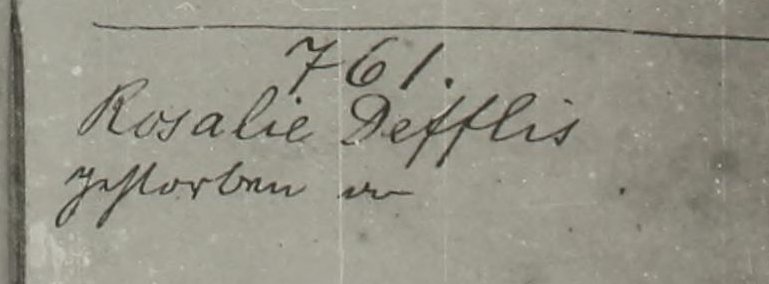 761.
Rosalie Defflis
gestorben